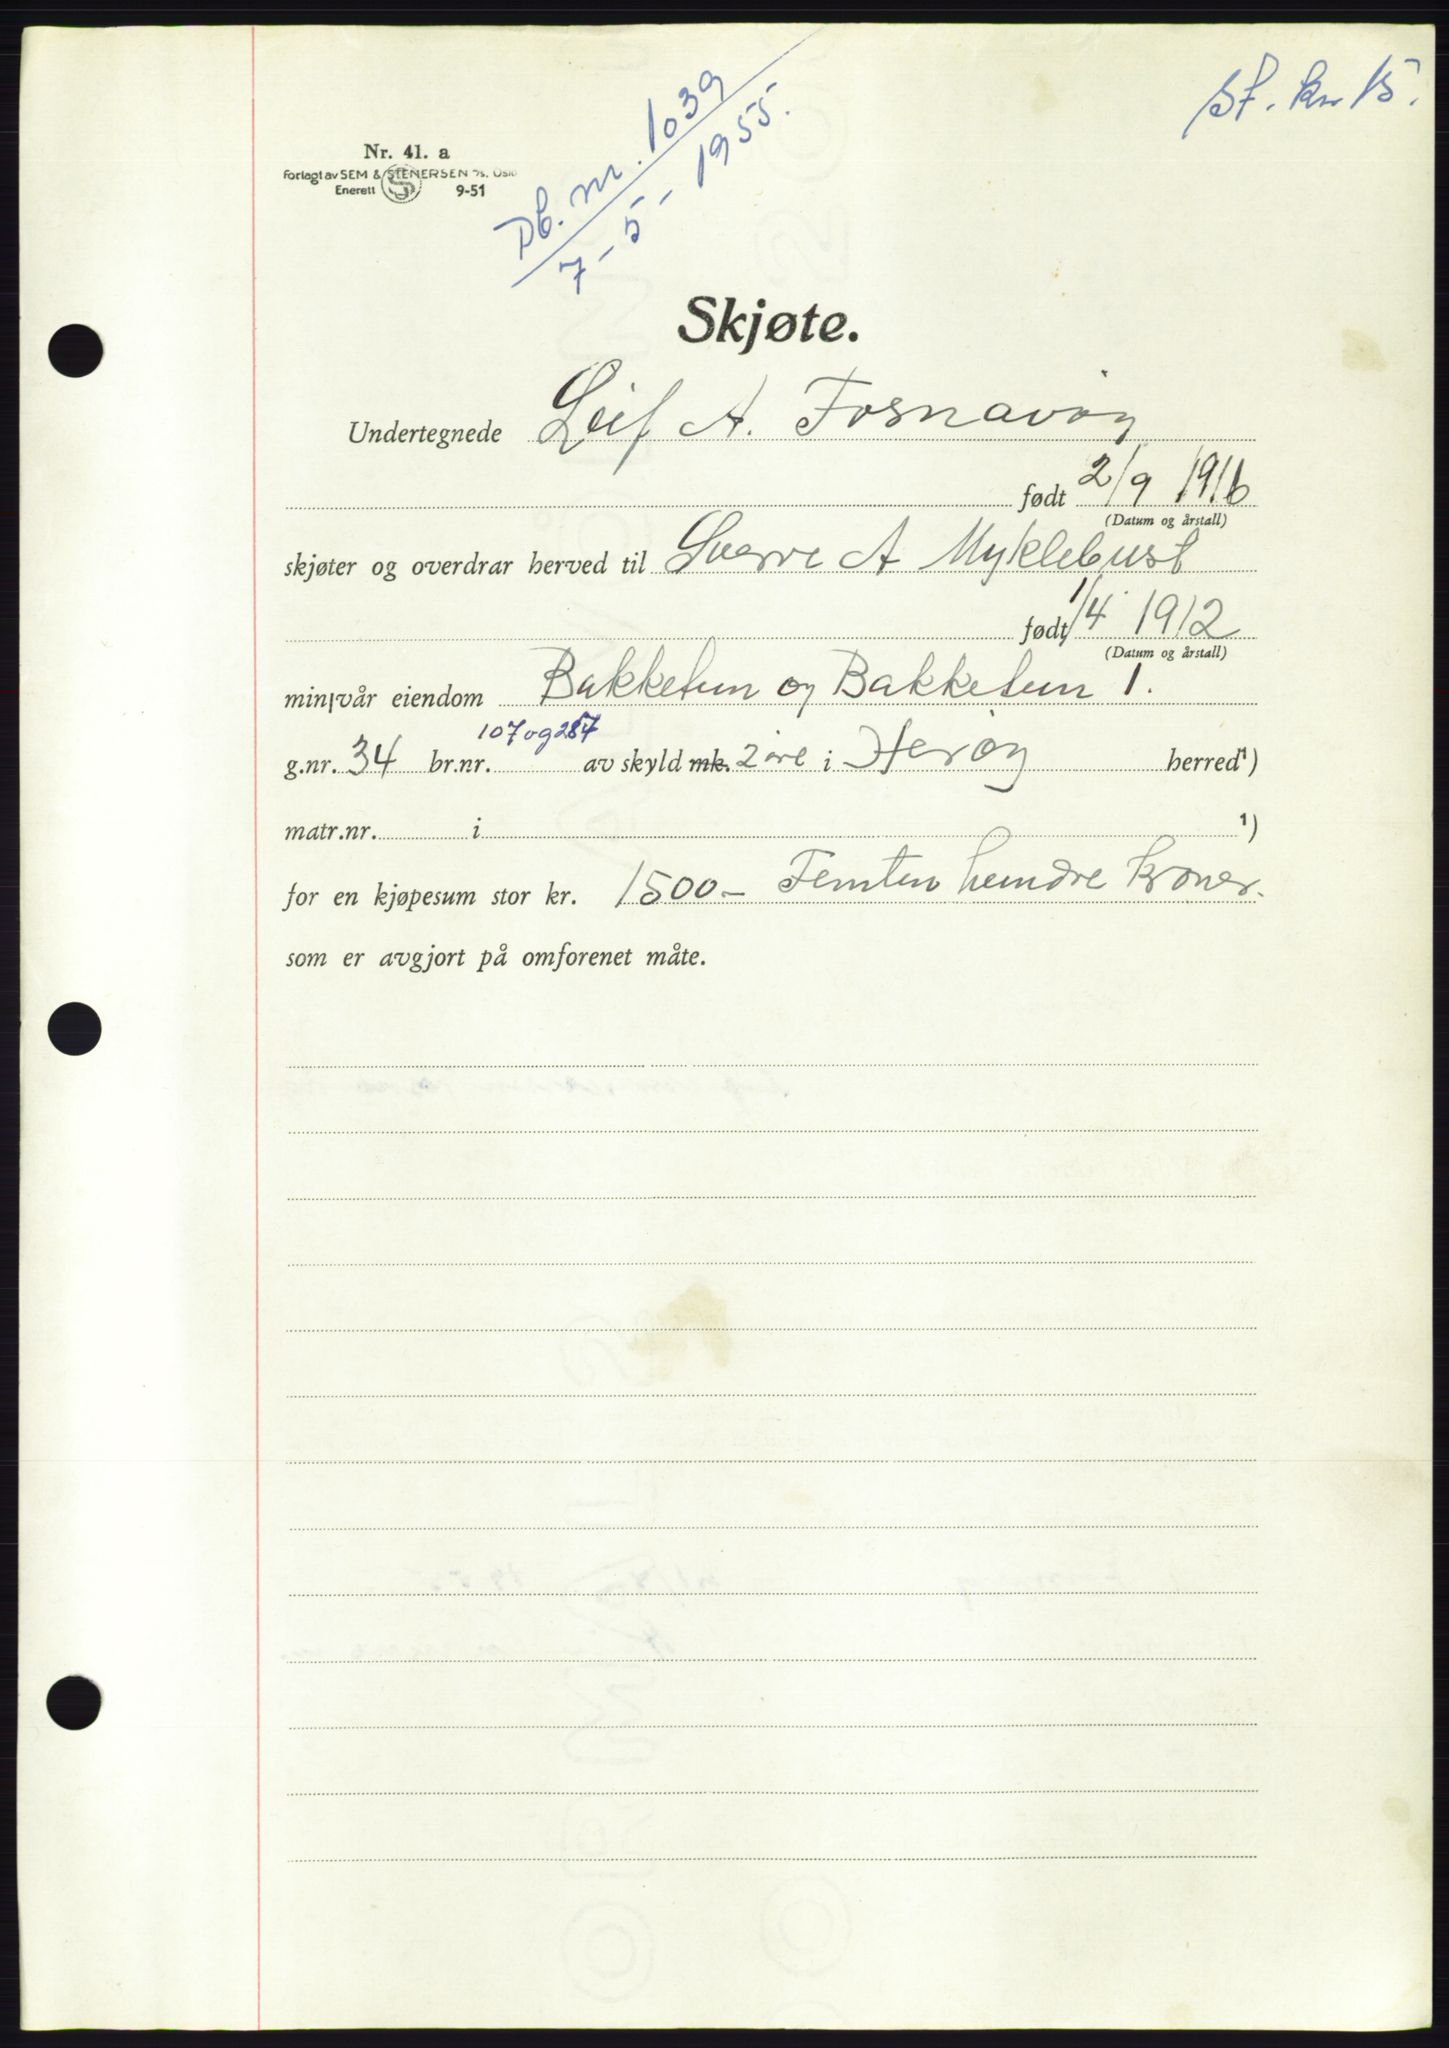 St. kr. 15.
Db. nr. 1039
7-5-1955.
Nr. 41. a
Forlagt av SEM & STENERSEN A/S. OSLO
Enerett S 9-51
Skjøte.
Undertegnede Leif A. Fosnavåg
født 2/9 1916
(Datum og årstall)
skjøter og overdrar herved til Sverre A Myklebust
født 1/4 1912
(Datum og årstall)
min/vår eiendom Bakketun og Bakketun 1.
107 og 287
g.nr. 34 br.nr. av skyld mk. 2 øre i Herøy herred ¹)
matr.nr. i ¹)
for en kjøpesum stor kr. 1500- Femten hundre kroner.
som er avgjort på omforenet måte.